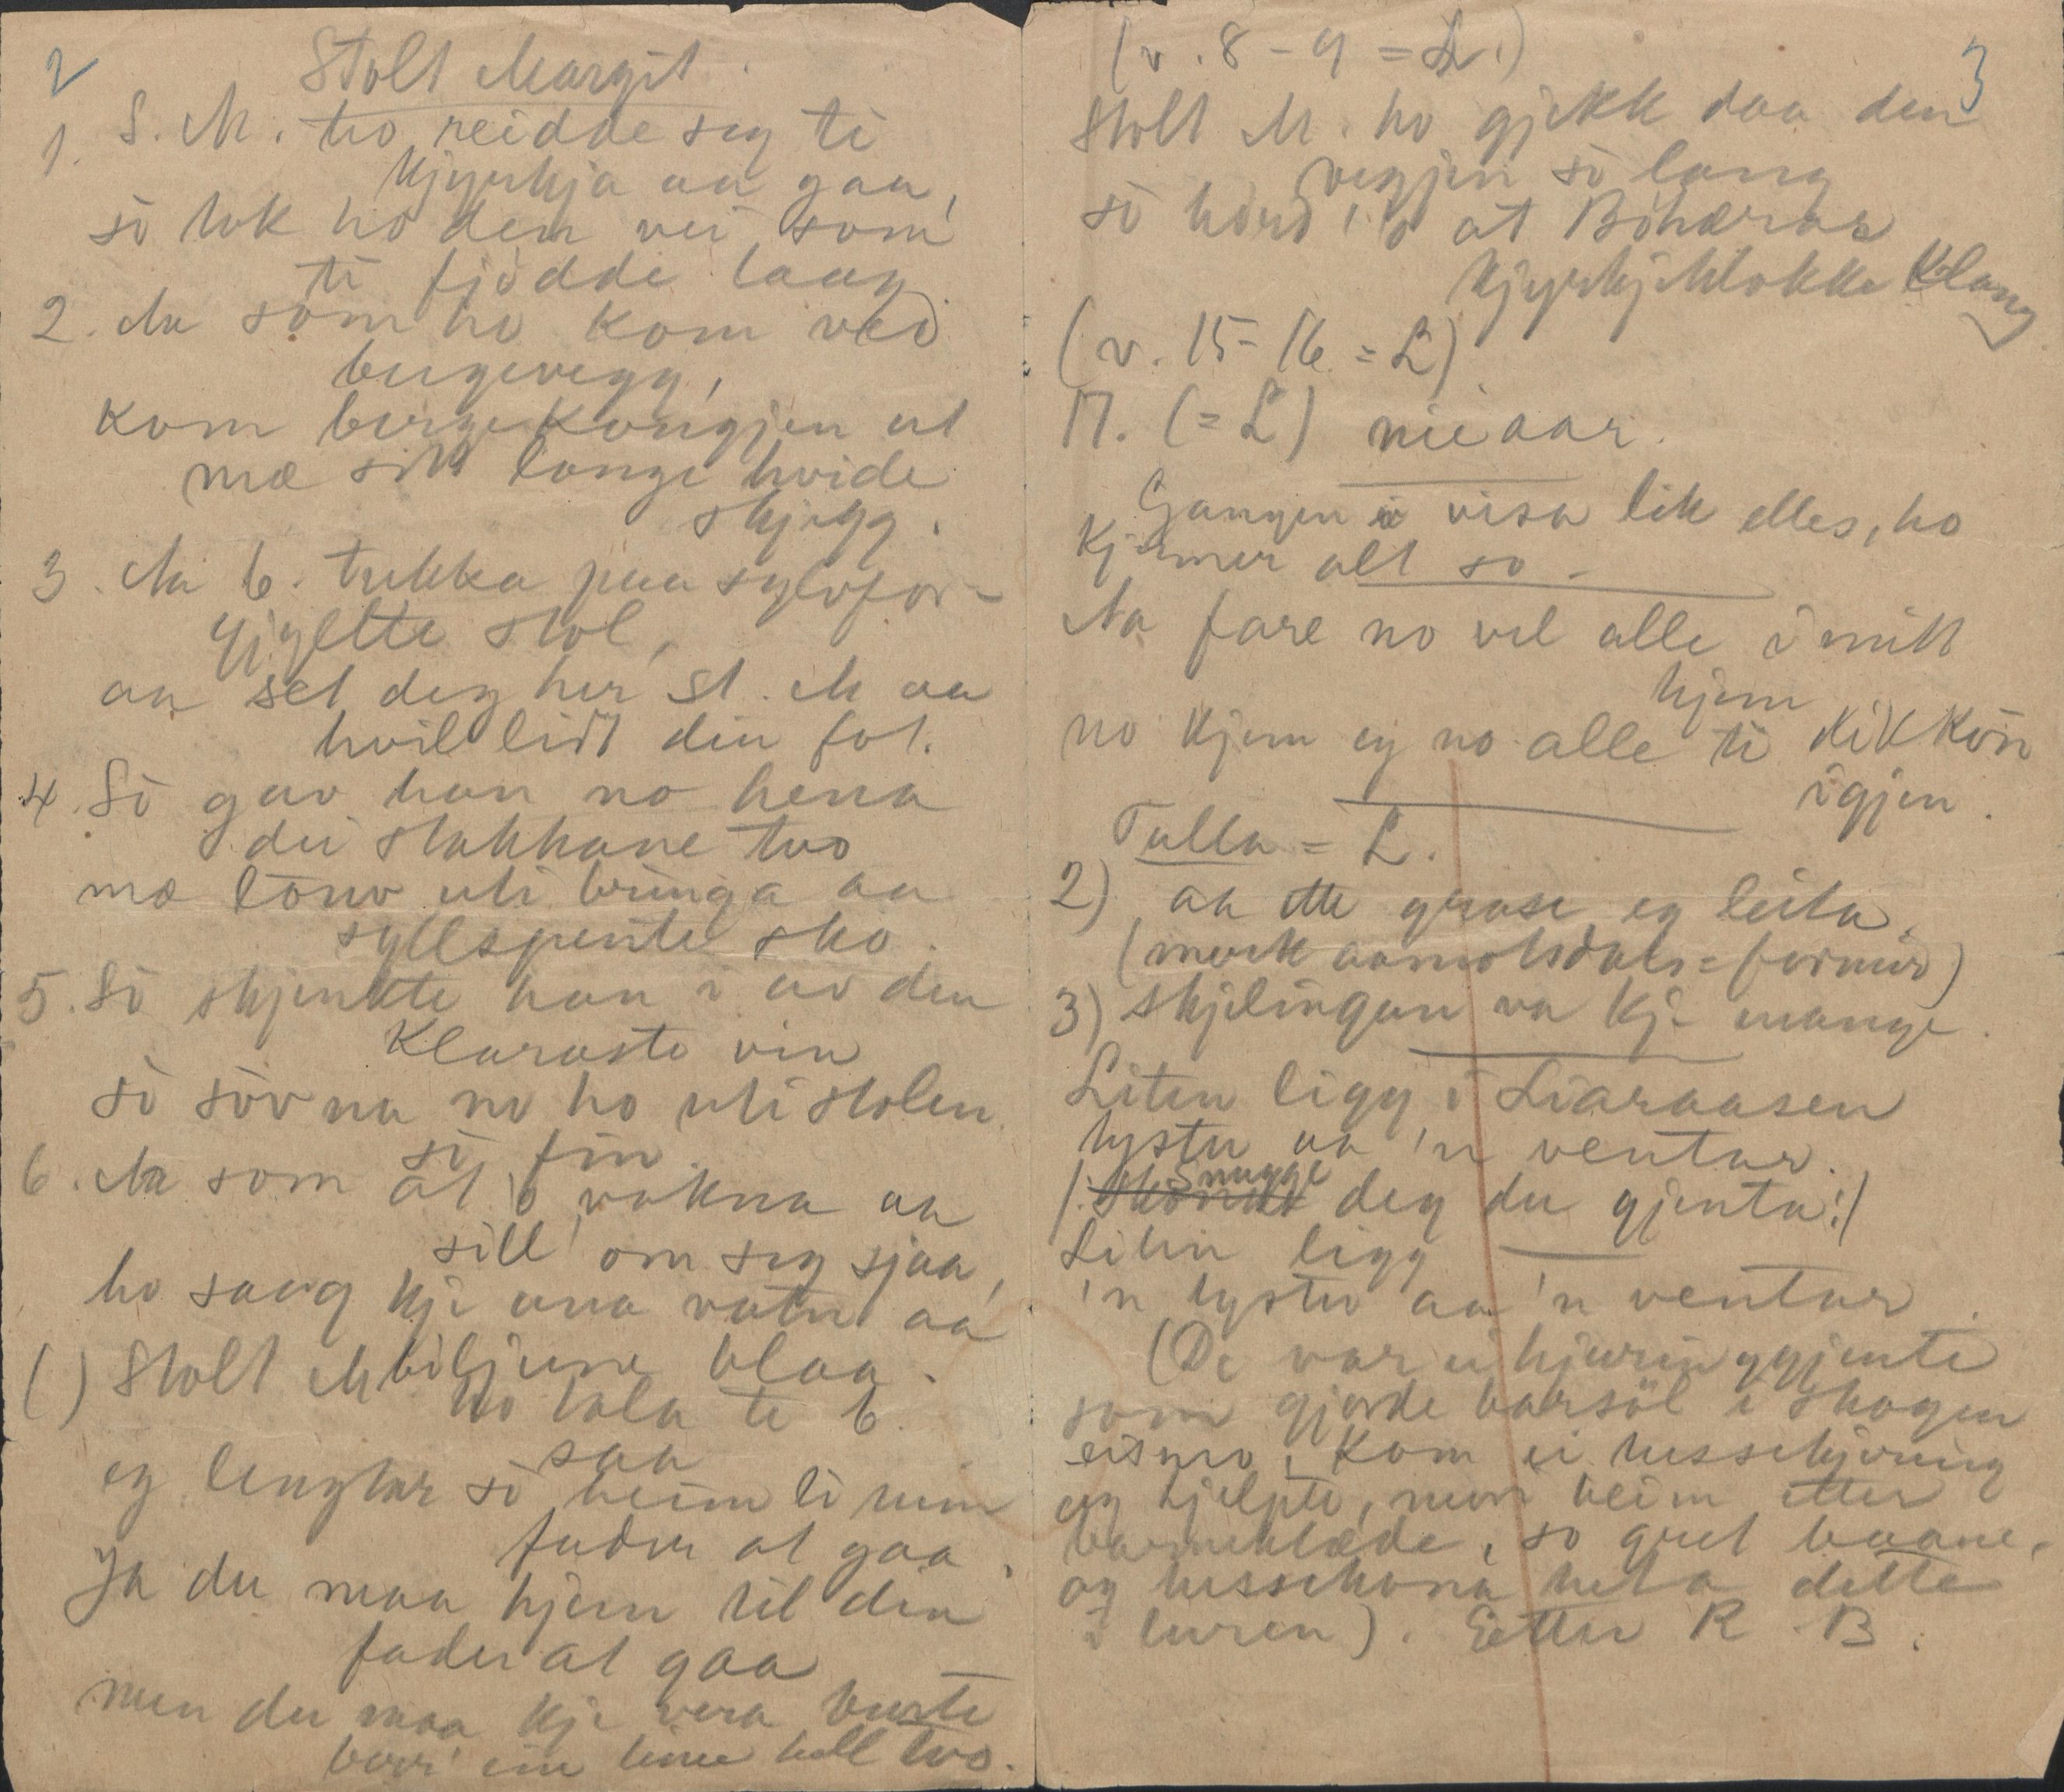 2
Stolt Margit.
1. S. M. ho reidde seg ti
kjyrkja aa gaa,
sò tok ho den vei som
ti fjødde laag
2. Aa som ho kom ved
bergevegg,
kom bergekongjen ut
mæ sitt lange hvide
skjegg.
3. Aa b. trekka paa sylvfor-
gjylte stol,
aa set deg her St. M aa
hvil lidt din fot.
4. Sò gav han no hena
dei stakkane tvo
mæ lònv uti bringa aa
syllspente sko.
5. Sò skjenkte han i av den
klaraste vin
sò sòvna no ho uti stolen
sò fin.
6. Aa som at 'o vakna aa
sill' om seg sjaa,
ho saag kje ana vatn aa
biljune blaa.
( ) Stolt M ho tala te b.
saa
eg lengtar sò heim ti min
fader at gaa.
Ja du maa hjem til din
fader at gaa
men du maa kje vera burte
borr' ein time hell tvo.
3
(v. 8 - 9 = L.)
Stolt M. ho gjekk daa den
vegjen sò lang
sò hørd' 'o at Bøhæras
kjyrkjeklokke klang
(v. 15 - 16 = L)
17. (= L) nie aar.
Gangen i visa lik elles, ho
kjemer alt so -
Aa fare no vel alle i mitt
hjem
no kjem eg no alle ti dikkòn
igjen.
Tulla = L.
2) aa itte grase eg leita.
(merk aamotsdals-formir)
3) skjelingan va kje mange.
Liten ligg i Liaraasen
lyster aa 'n ventar.
/: Snugge deg du gjenta :/
Liten ligg
'n lyster aa 'n ventar.
(De var ei hjuringgjente
som gjorde barsòl i skogen
eismo, kom ei hussekjering
og hjelpte, men heim etter
barneklæde, so gret baane,
og hussekona kvta dette
i luren). Etter R. B.